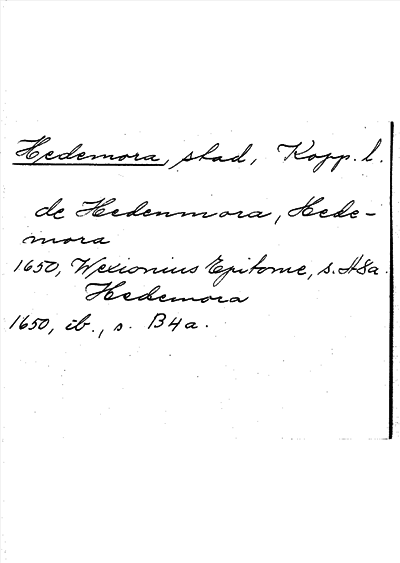 Hedemora, stad, Kopp. l.
de Hedenmora, Hede-
mora
1650, Wexionius Epitome, s. H8a.
Hedemora
1650, ib., s. B4a.